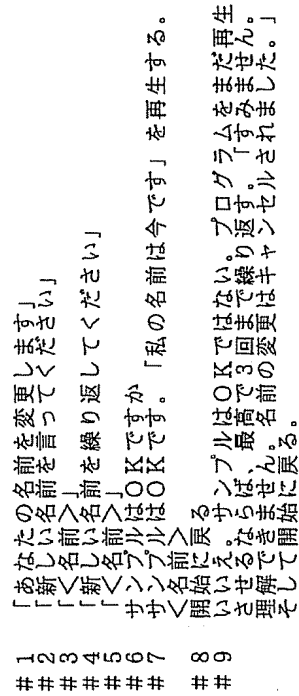 #1 「あなたの名前を変更します」
#2 「新しい名前を言ってください」
#3 「<名前>」
#4 「新しい名前を繰り返してください」
#5 「<名前>」
#6 サンプルはOKですか
#7 サンプルはOKです。「私の名前は今です」を再生する。
<名前>
#8 開始に戻る
#9 いいえ。サンプルはOKではない。プログラムをまだ再生
させるならば、最高で3回まで繰り返す。「すみません。
理解できません。名前の変更はキャンセルされました。」
そして開始に戻る。